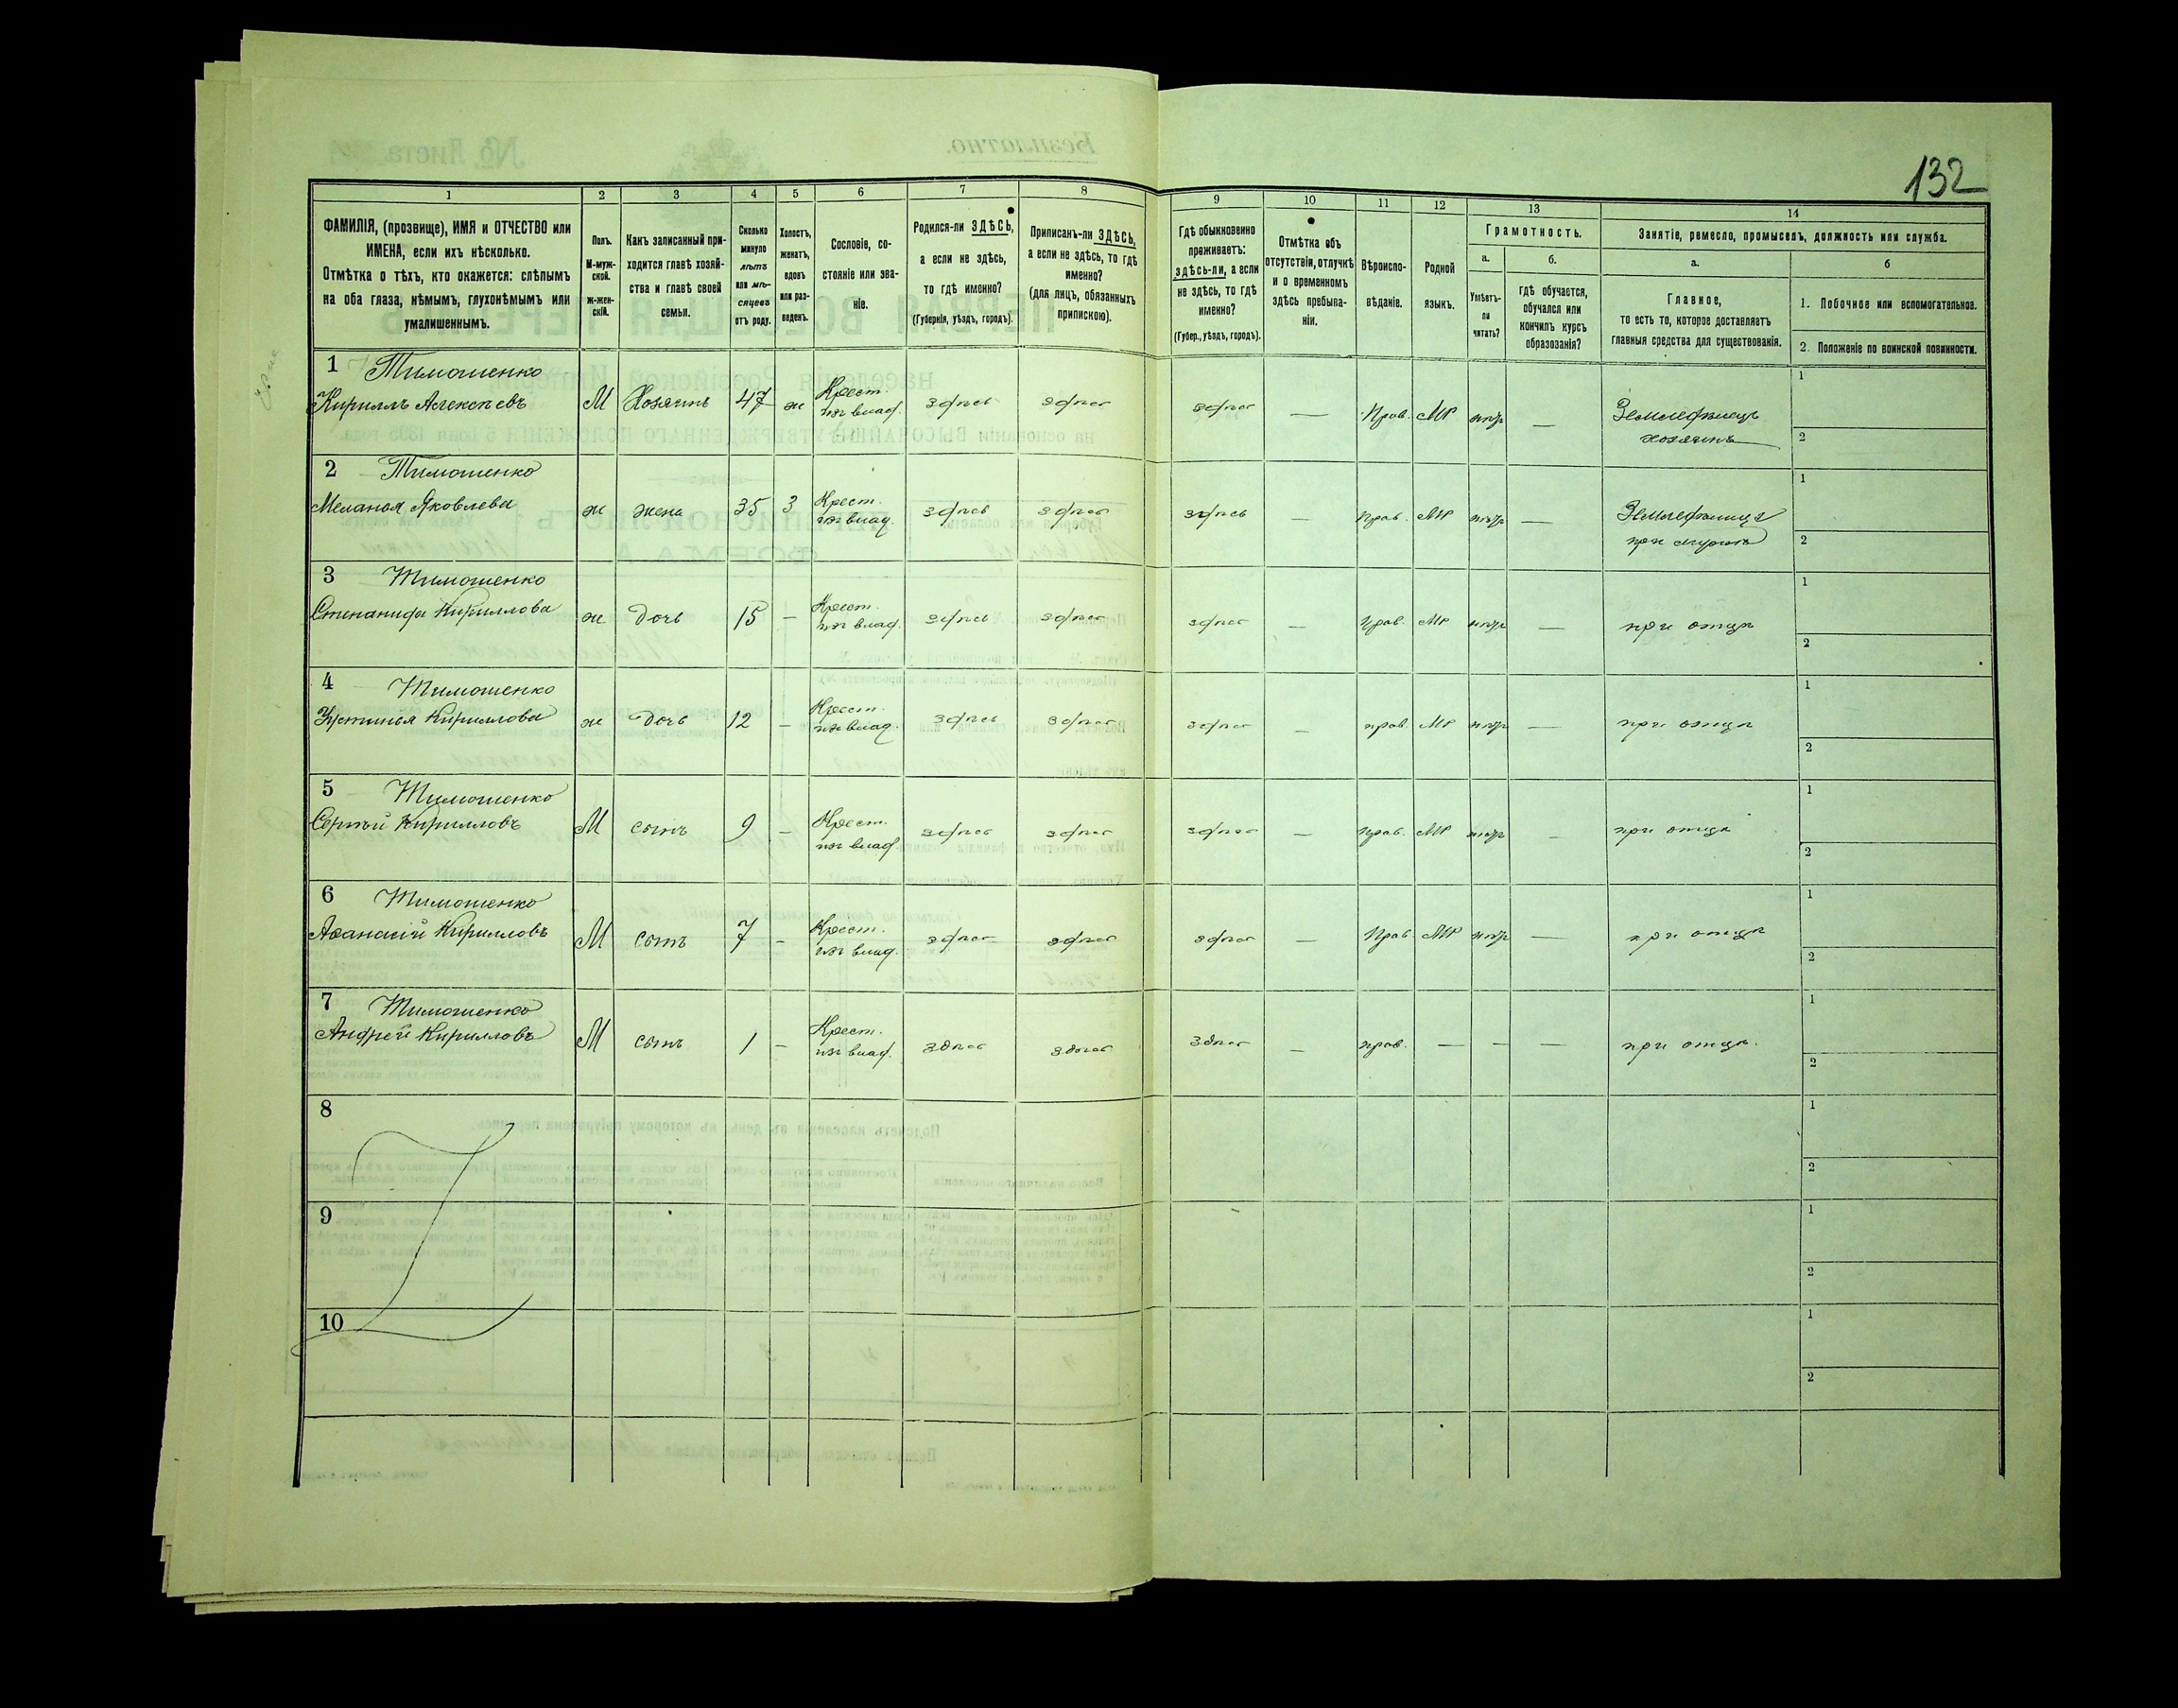 132
1
2
3
4
5
6
7
8
9
10
11
12
13
14
ФАМИЛІЯ, (прозвище), ИМЯ и ОТЧЕСТВО или
ИМЕНА, если ихъ нѣсколько.
Отмѣтка о тѣхъ, кто окажется: слѣпымъ
на оба глаза, нѣмымъ, глухонѣмымъ или
умалишеннымъ.
Полъ.
М-муж-
ской.
ж-жен-
скій.
Какъ записанный при-
ходится главѣ хозяй-
ства и главѣ своей
семьи.
Сколько
минуло
лѣтъ
или мѣ-
сяцевъ
отъ роду.
Холостъ,
женатъ,
вдовъ
или раз-
веденъ.
Сословіе, со-
стояніе или зва-
ніе.
Родился-ли ЗДѢСЬ,
а если не здѣсь,
то гдѣ именно?
(Губернія, уѣздъ, городъ).
Приписанъ-ли ЗДѢСЬ,
а если не здѣсь, то гдѣ
именно?
(для лицъ, обязанныхъ
припискою).
Гдѣ обыкновенно
проживаетъ:
здѣсь-ли, а если
не здѣсь, то гдѣ
именно?
(Губер., уѣздъ, городъ).
Отмѣтка объ
отсутствіи, отлучкѣ
и о временномъ
здѣсь пребыва-
ніи.
Вѣроиспо-
вѣданіе.
Родной
языкъ.
Грамотность.
а.
Умѣетъ-
ли
читать?
б.
гдѣ обучается,
обучался или
кончилъ курсъ
образованія?
Занятіе, ремесло, промыселъ, должность или служба.
а.
Главное,
то есть то, которое доставляетъ
главныя средства для существованія.
б
1. Побочное или вспомогательное.
2. Положеніе по воинской повинности.
1 Тимошенко
Кириллъ Алексѣевъ М Хозяинъ 47 ж Крест. изъ влад. здѣсь здѣсь здѣсь — Прав. МР нѣтъ — Земледѣлецъ хозяинъ
1
2
2 Тимошенко
Меланья Яковлева ж жена 35 З Крест. изъ влад. здѣсь здѣсь здѣсь — Прав. МР нѣтъ — при мужѣ
1
2
3 Тимошенко
Степанида Кириллова ж дочь 15 — Крест. изъ влад. здѣсь здѣсь здѣсь — Прав. МР нѣтъ — при отцѣ
1
2
4 Тимошенко
Устинья Кириллова ж дочь 12 — Крест. изъ влад. здѣсь здѣсь здѣсь — прав. МР нѣтъ — при отцѣ
1
2
5 Тимошенко
Сергѣй Кирилловъ М сынъ 9 — Крест. изъ влад. здѣсь здѣсь здѣсь — прав. МР нѣтъ — при отцѣ
1
2
6 Тимошенко
Аѳанасій Кирилловъ М сынъ 7 — Крест. изъ влад. здѣсь здѣсь здѣсь — Прав. МР нѣтъ — при отцѣ
1
2
7 Тимошенко
Андрей Кирилловъ М сынъ 1 — Крест. изъ влад. здѣсь здѣсь здѣсь — прав. — — — при отцѣ.
1
2
8
1
2
9
1
2
10
1
2